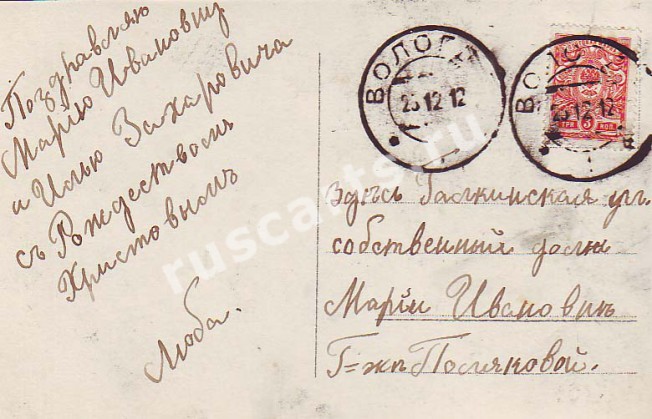 Поздравляю
Марiю Ивановну
и Илью Захаровича
съ Рождествомъ
Христовымъ
Люба.
ВОЛОГДА
23 12 12
ВОЛОГДА
23 12 12
ТРИ 3 КОП.
Здѣсь Галкинская ул.
собственный домъ
Марiи Ивановнѣ
Г=жѣ Поляковой.
ruscarts.ru